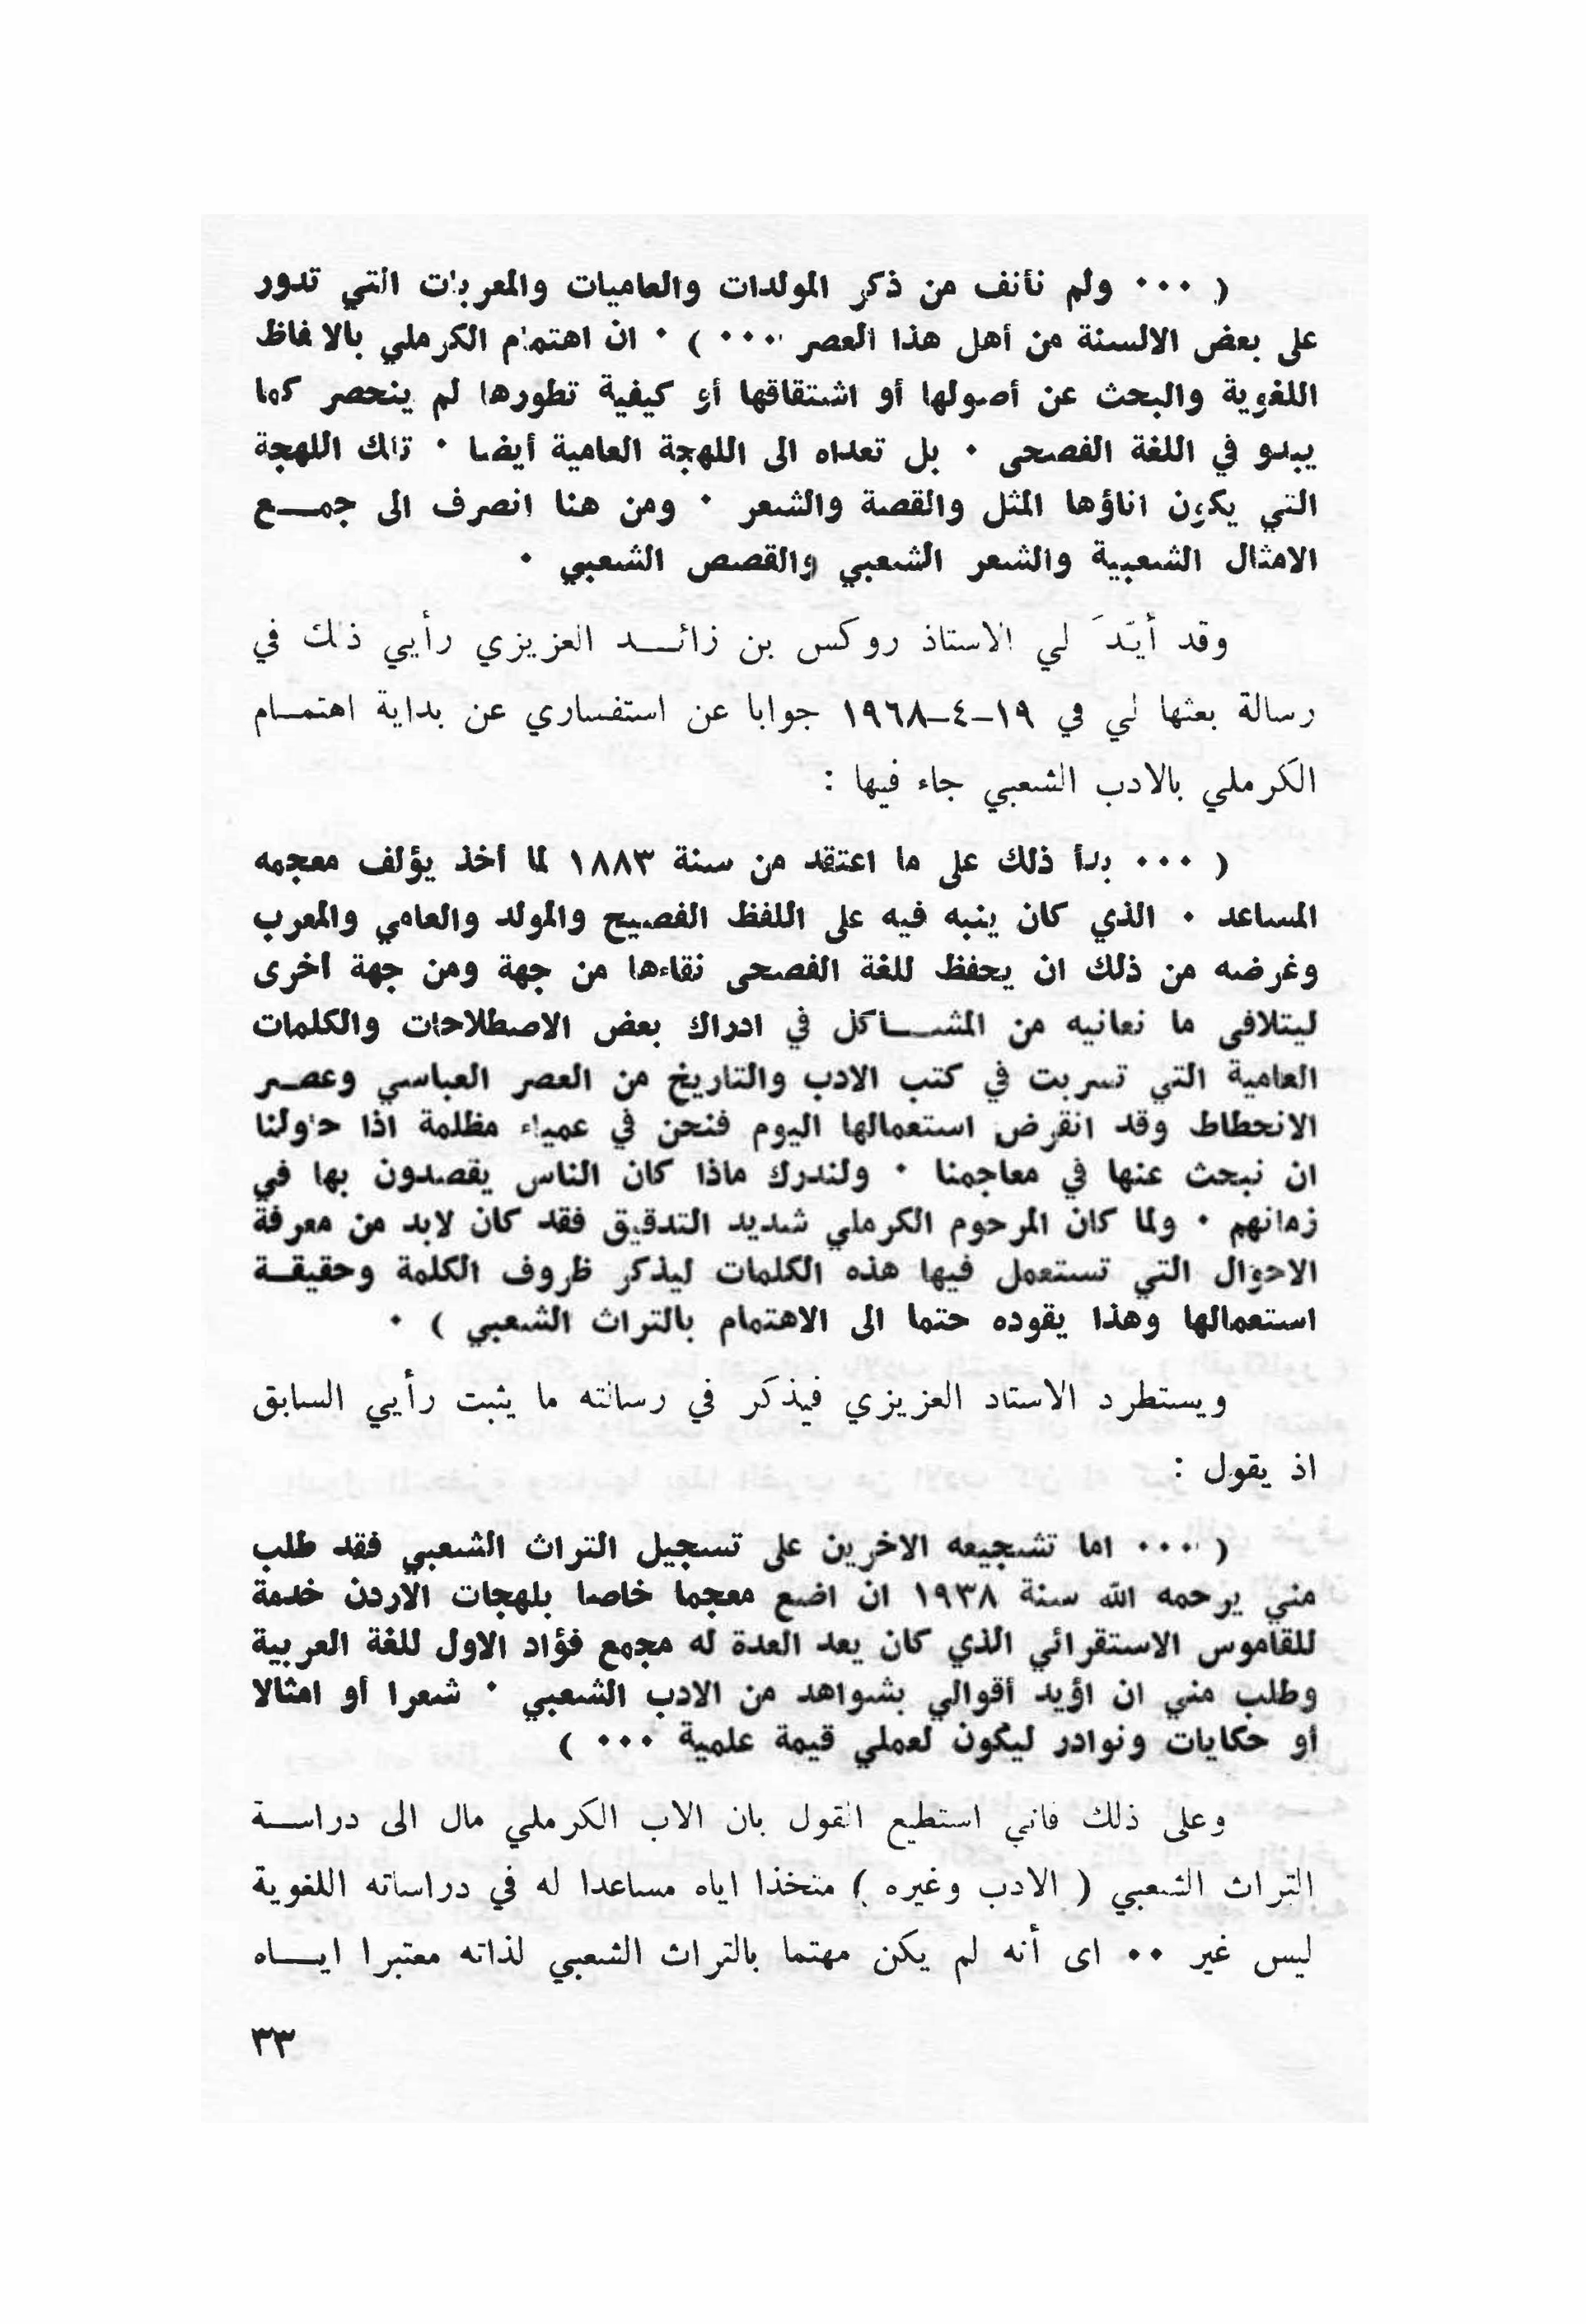 ( ٠٠٠ ولم نأنف من ذكر المولدات والعاميات والمعربات التي تدور
على بعض الالسنة من أهل هذا العصر ٠٠٠ ) ٠ ان اهتمام الكرملي بالالفاظ
اللغوية والبحث عن أصولها أو اشتقاقها أو كيفية تطورها لم ينحصر كما
يبدو في اللغة الفصحى ٠ بل تعداه الى اللهجة العامية أيضا ٠ تلك اللهجة
التي يكون اناؤها المثل والقصة والشعر ٠ ومن هنا انصرف الى جمـــع
الامثال الشعبية والشعر الشعبي والقصص الشعبي ٠
وقد أيّدَ لي الاستاذ روكس بن زائـــد العزيزي رأيي ذلك في
رسالة بعثها لي في ١٩-٤-١٩٦٨ جوابا عن استفساري عن بداية اهتمــام
الكرملي بالادب الشعبي جاء فيها :
( ٠٠٠ بدأ ذلك على ما اعتقد من سنة ١٨٨٣ لما أخذ يؤلف معجمه
المساعد ٠ الذي كان ينبه فيه على اللفظ الفصيح والمولد والعامي والمعرب
وغرضه من ذلك ان يحفظ للغة الفصحى نقاءها من جهة ومن جهة أخرى
ليتلافى ما نعانيه من المشـــاكل في ادراك بعض الاصطلاحات والكلمات
العامية التي تسربت في كتب الادب والتاريخ من العصر العباسي وعصـر
الانحطاط وقد انقرض استعمالها اليوم فنحن في عمياء مظلمة اذا حاولنا
ان نبحث عنها في معاجمنا ٠ ولندرك ماذا كان الناس يقصدون بها في
زمانهم ٠ ولما كان المرحوم الكرملي شديد التدقيق فقد كان لابد من معرفة
الاحوال التي تستعمل فيها هذه الكلمات ليذكر ظروف الكلمة وحقيقـة
استعمالها وهذا يقوده حتما الى الاهتمام بالتراث الشعبي ) ٠
ويستطرد الاستاد العزيزي فيذكر في رسالته ما يثبت رأيي السابق
اذ يقول :
( ٠٠٠ اما تشجيعه الاخرين على تسجيل التراث الشعبي فقد طلب
مني يرحمه الله سنة ١٩٣٨ ان اضع معجما خاصا بلهجات الأردن خدمة
للقاموس الاستقرائي الذي كان يعد العدة له مجمع فؤاد الاول للغة العربية
وطلب مني ان اؤيد أقوالي بشواهد من الادب الشعبي ٠ شعرا أو امثالا
أو حكايات ونوادر ليكون لعملي قيمة علمية ٠٠٠ )
وعلى ذلك فاني استطيع القول بان الاب الكرملي مال الى دراســة
التراث الشعبي ( الادب وغيره ) متخذا اياه مساعدا له في دراساته اللغوية
ليس غير ٠٠ اى أنه لم يكن مهتما بالتراث الشعبي لذاته معتبرا ايـــاه
٣٣